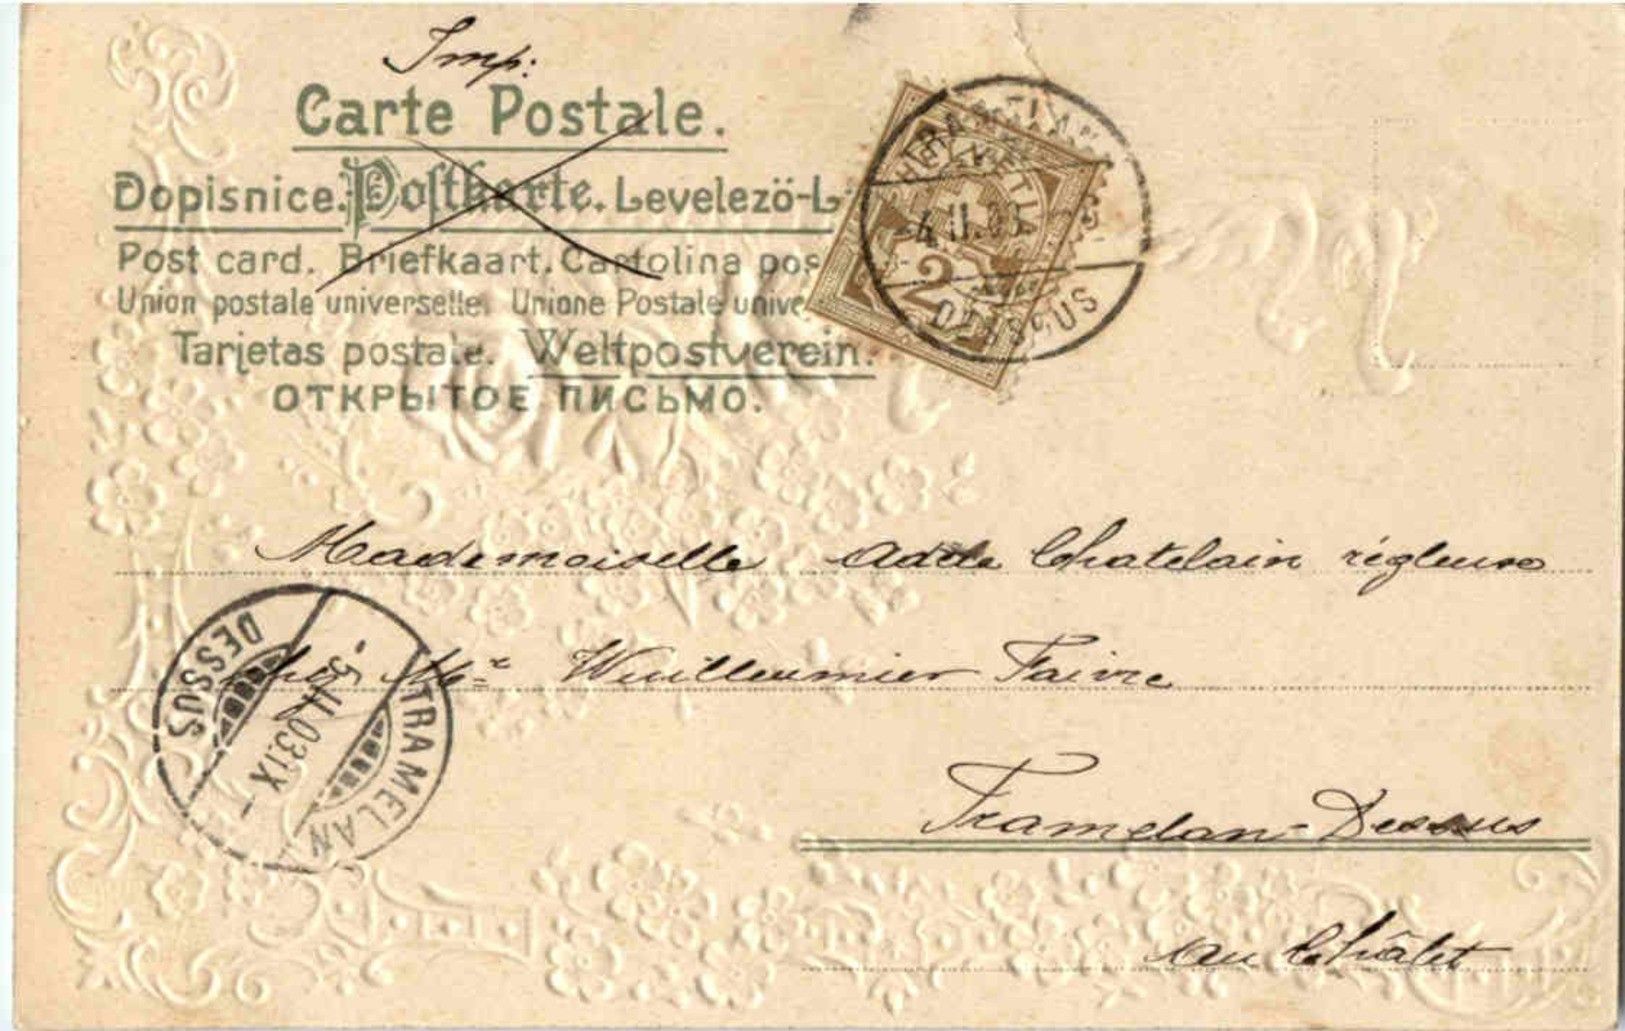 Imp:
Carte Postale.
Dopisnice. Postkarte. Levelezö-L
Post card. Briefkaart. Cartolina pos
Union postale universelle. Unione Postale unive
Tarjetas postale. Weltpostverein.
ОТКРЫТОЕ ПИСЬМО.
HELVETIA
2
4.II.03
DESSUS
Mademoiselle Adèle Chatelain régleuse
chez Mr Wuilleumier Faivre
Tramelan-Dessus
au Châlet
TRAMELAN
DESSUS
-5.II.03.IX-